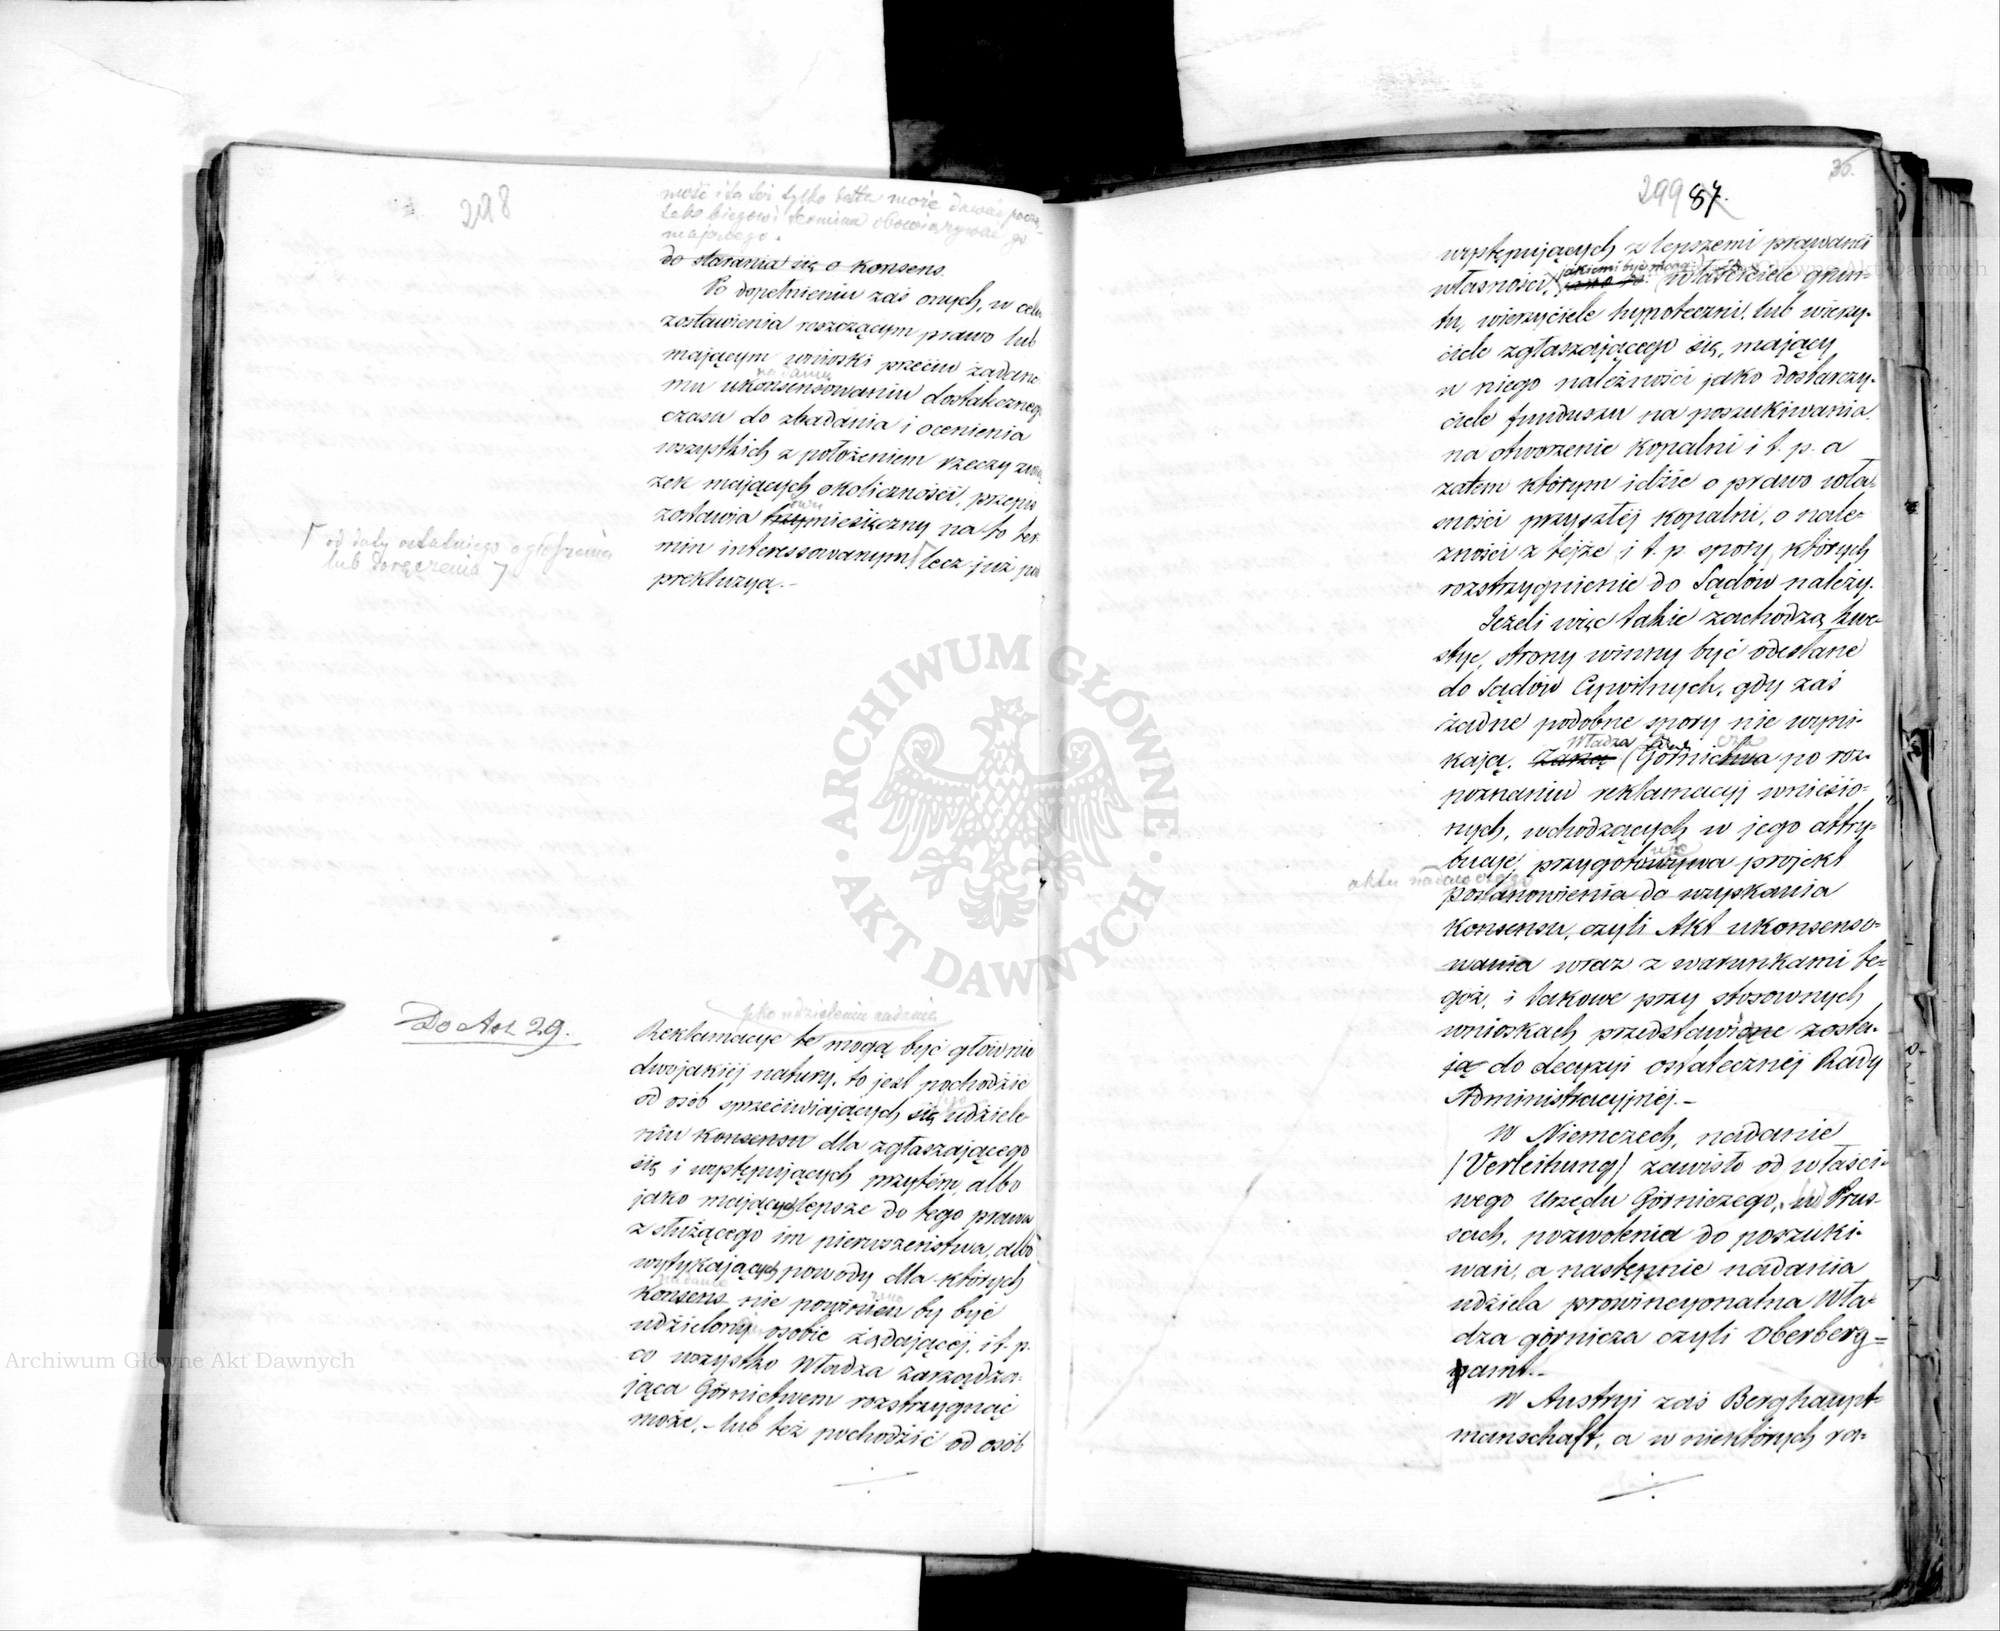 298
mość i ta też tylko data może dawać począ-
tek biegowi terminu obowiązywać go
mającego.
do starania się o konsens.
Po dopełnieniu zaś onych, w celu
zostawienia roszczącym prawo lub
mającym wnioski przeciw żądane-
nadaniu
mu ukonsensowaniu dostatecznego
czasu do zbadania i ocenienia
wszystkich z położeniem rzeczy zwią
zek mających okoliczności, przepis
zostawia trzymiesięczny na to ter-
min interessowanym, lecz już pod
prekluzyą.-
od daty ostatniego ogłoszenia
lub doręczenia
Do Art 29.
jako udzieleniu nadania
Reklamacye te mogą być głównie
dwojakiéj natury, to jest pochodzić
od osób sprzeciwiających się udziele-
niu konsensu dla zgłaszającego
się i występujących przytém, albo
jako mających lepsze do tego prawa
z służącego im pierwszeństwa, albo
wytykających powody dla których
nadanie
konsens nie powinien by być
udzielony osobie żądającéj, i t. p.
co wszystko Władza zarządza-
jąca Górnictwem rozstrzygnąć
może, - lub też pochodzić od osób
36.
299 87.
występujących z lepszemi prawami
jakiemi być mogą:
własności, właściciele grun-
tu, wierzyciele hypoteczni, lub wierzy-
ciele zgłaszającego się, mający
u niego należności jako dostarczy-
ciele funduszu na poszukiwania,
na otworzenie kopalni i t. p. a
zatem którym idzie o prawo wła-
sności przyszłéj kopalni, o nale-
żności z tejże i t. p. spory, których
rozstrzygnienie do Sądów należy.
Jeżeli więc takie zachodzą kwe-
stye, strony winny być odesłane
do Sądów Cywilnych, gdy zaś
żadne podobne spory nie wyni-
Władza
kają, Zarząd Górnictwa po roz-
poznaniu reklamacyj wniesio-
nych, wchodzących w jego attry-
bucje, przygotowywa projekt
aktu nadawczego
postanowienia do uzyskania
konsensu, czyli Akt ukonsenso-
wania wraz z warunkami te-
goż, i takowe przy stosownych
wnioskach przedstawione zosta-
ją do decyzyi ostatecznéj Rady
Administracyjnéj.-
W Niemczech, nadanie
/Verleihung/ zawisło od właści-
wego Urzędu Górniczego, w Prus-
sach, pozwolenia do poszuki-
wań, a następnie nadania
udziela prowincyonalna Wła-
dza górnicza czyli Oberberg=
amt.-
W Austryi zaś Berghaupt-
manschaft, a w niektórych ra-
ARCHIWUM GŁÓWNE AKT DAWNYCH
Archiwum Główne Akt Dawnych
Archiwum Główne Akt Dawnych